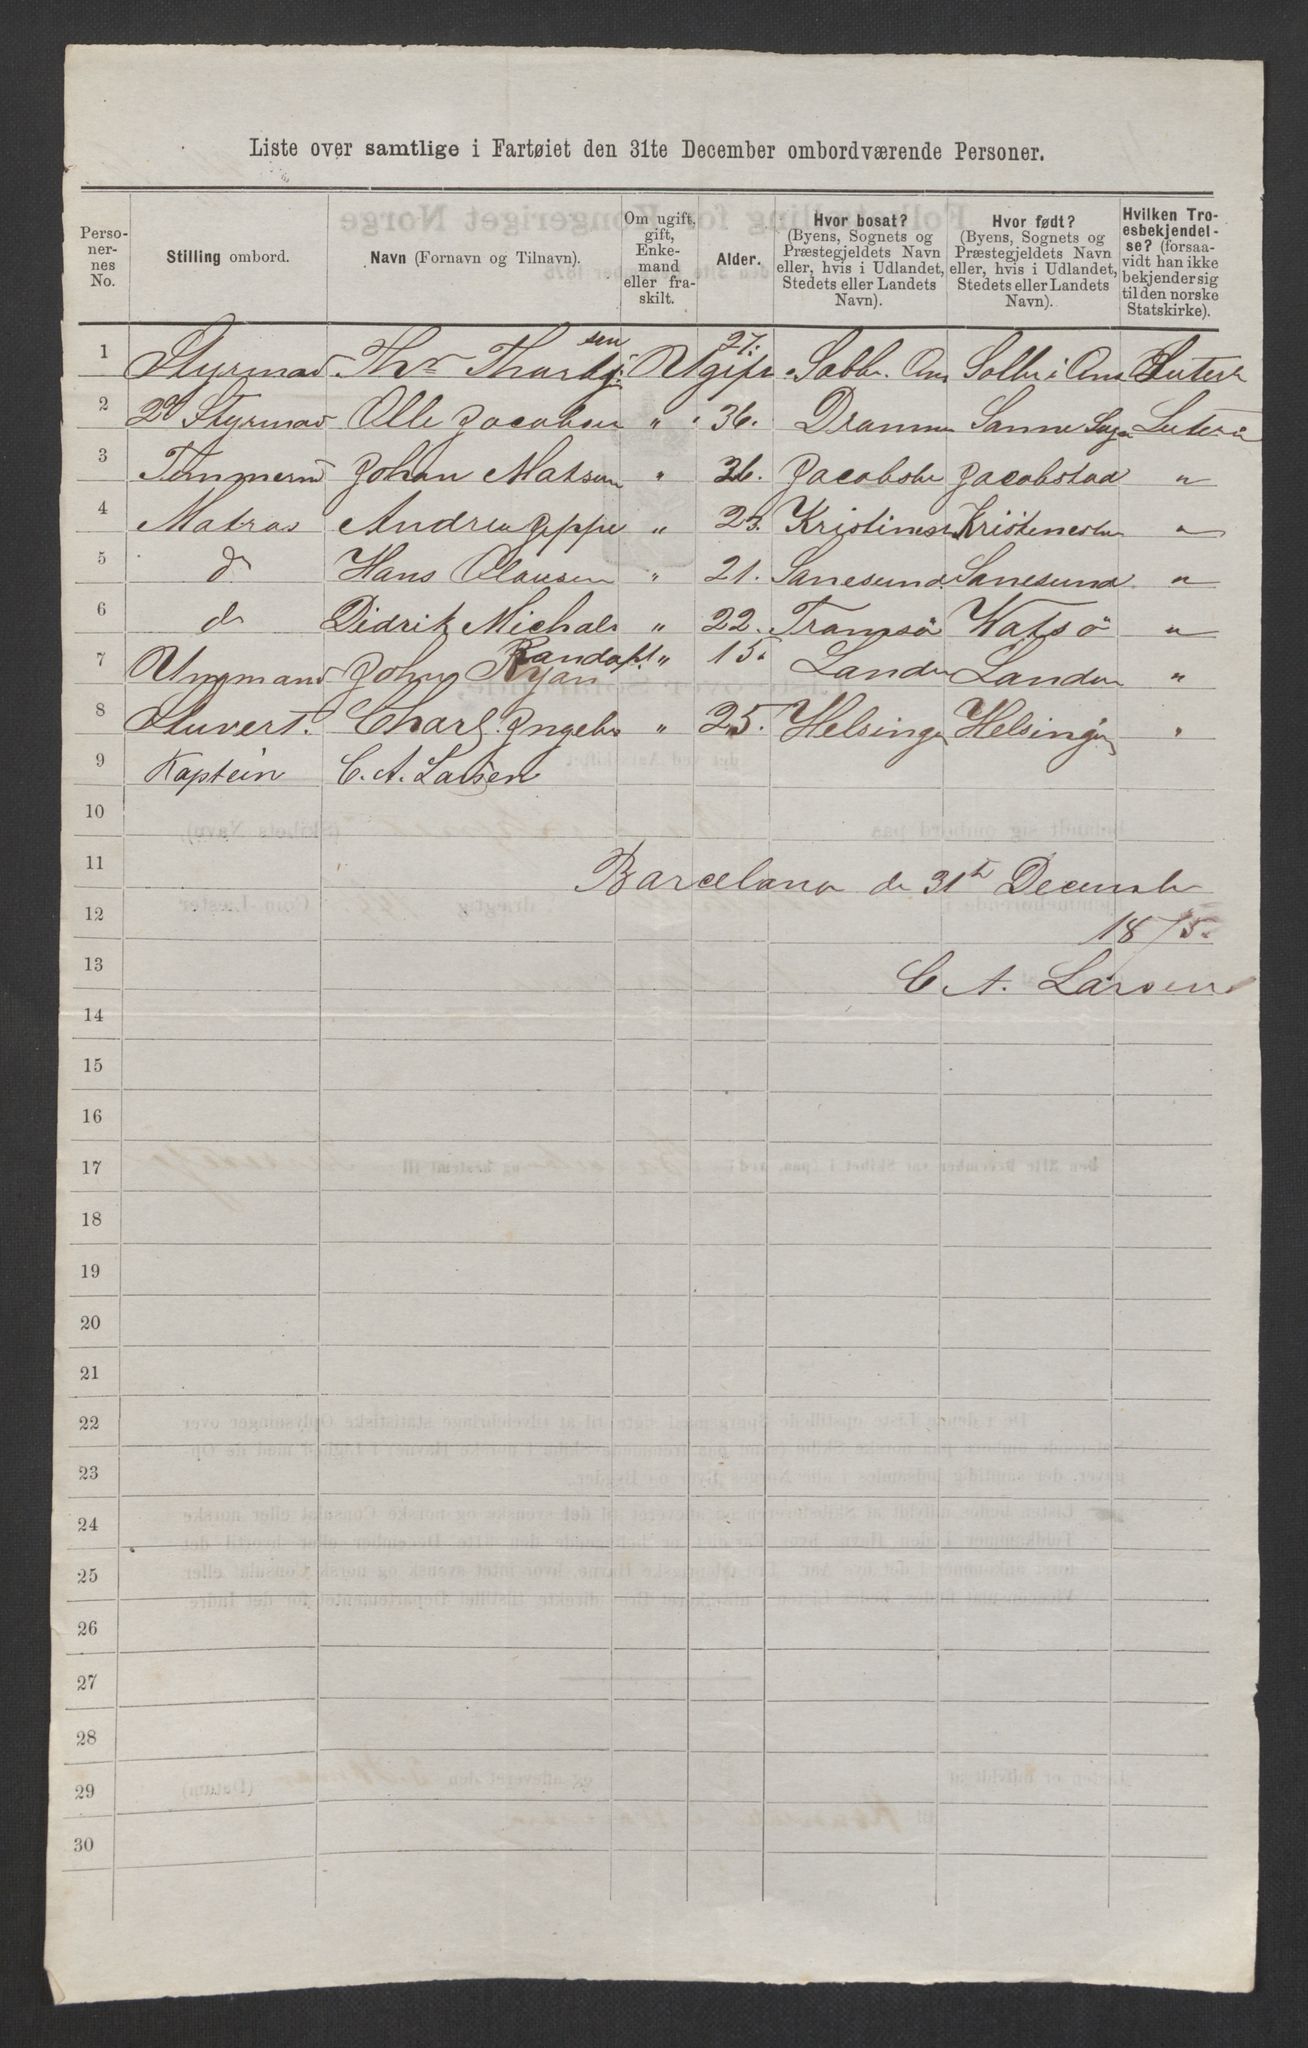 Liste over samtlige i Fartøiet den 31te December ombordværende Personer.
Personernes No. | Stilling ombord. | Navn (Fornavn og Tilnavn). | Om ugift, gift, Enkemand eller fraskilt. | Alder. | Hvor bosat? (Byens, Sognets og Præstegjeldets Navn eller, hvis i Udlandet, Stedets eller Landets Navn). | Hvor født? (Byens, Sognets og Præstegjeldets Navn eller, hvis i Udlandet, Stedets eller Landets Navn). | Hvilken Troesbekjendelse? (forsaavidt han ikke bekjender sig til den norske Statskirke).
1 Styrmad Thr Ugift 27. Luters
2 2d Styrmad Olle Jacobsen " 36. Drammn Sanne Luters
3 Tømmermd Johan Matsen " Jacobsta Jacobstad "
4 Matros Andrea Jeppe " 23. Kristines Kristinesta "
5 do Hans Olausen " 21. Sanesund Sanesund "
6 do Didrik Michals " 22. Tromsö Watsö "
7 Ungmand John Randolpt Ryan " 15. Landon Landon "
8 Stuvert. Charl. Ingebr " 25. Helsingø Helsingø "
9 Kaptein C. A. Larsen
10
11 Barcelona de 31te Decembr
12 1875.
13 C A. Larsen
14
15
16
17
18
19
20
21
22
23
24
25
26
27
28
29
30